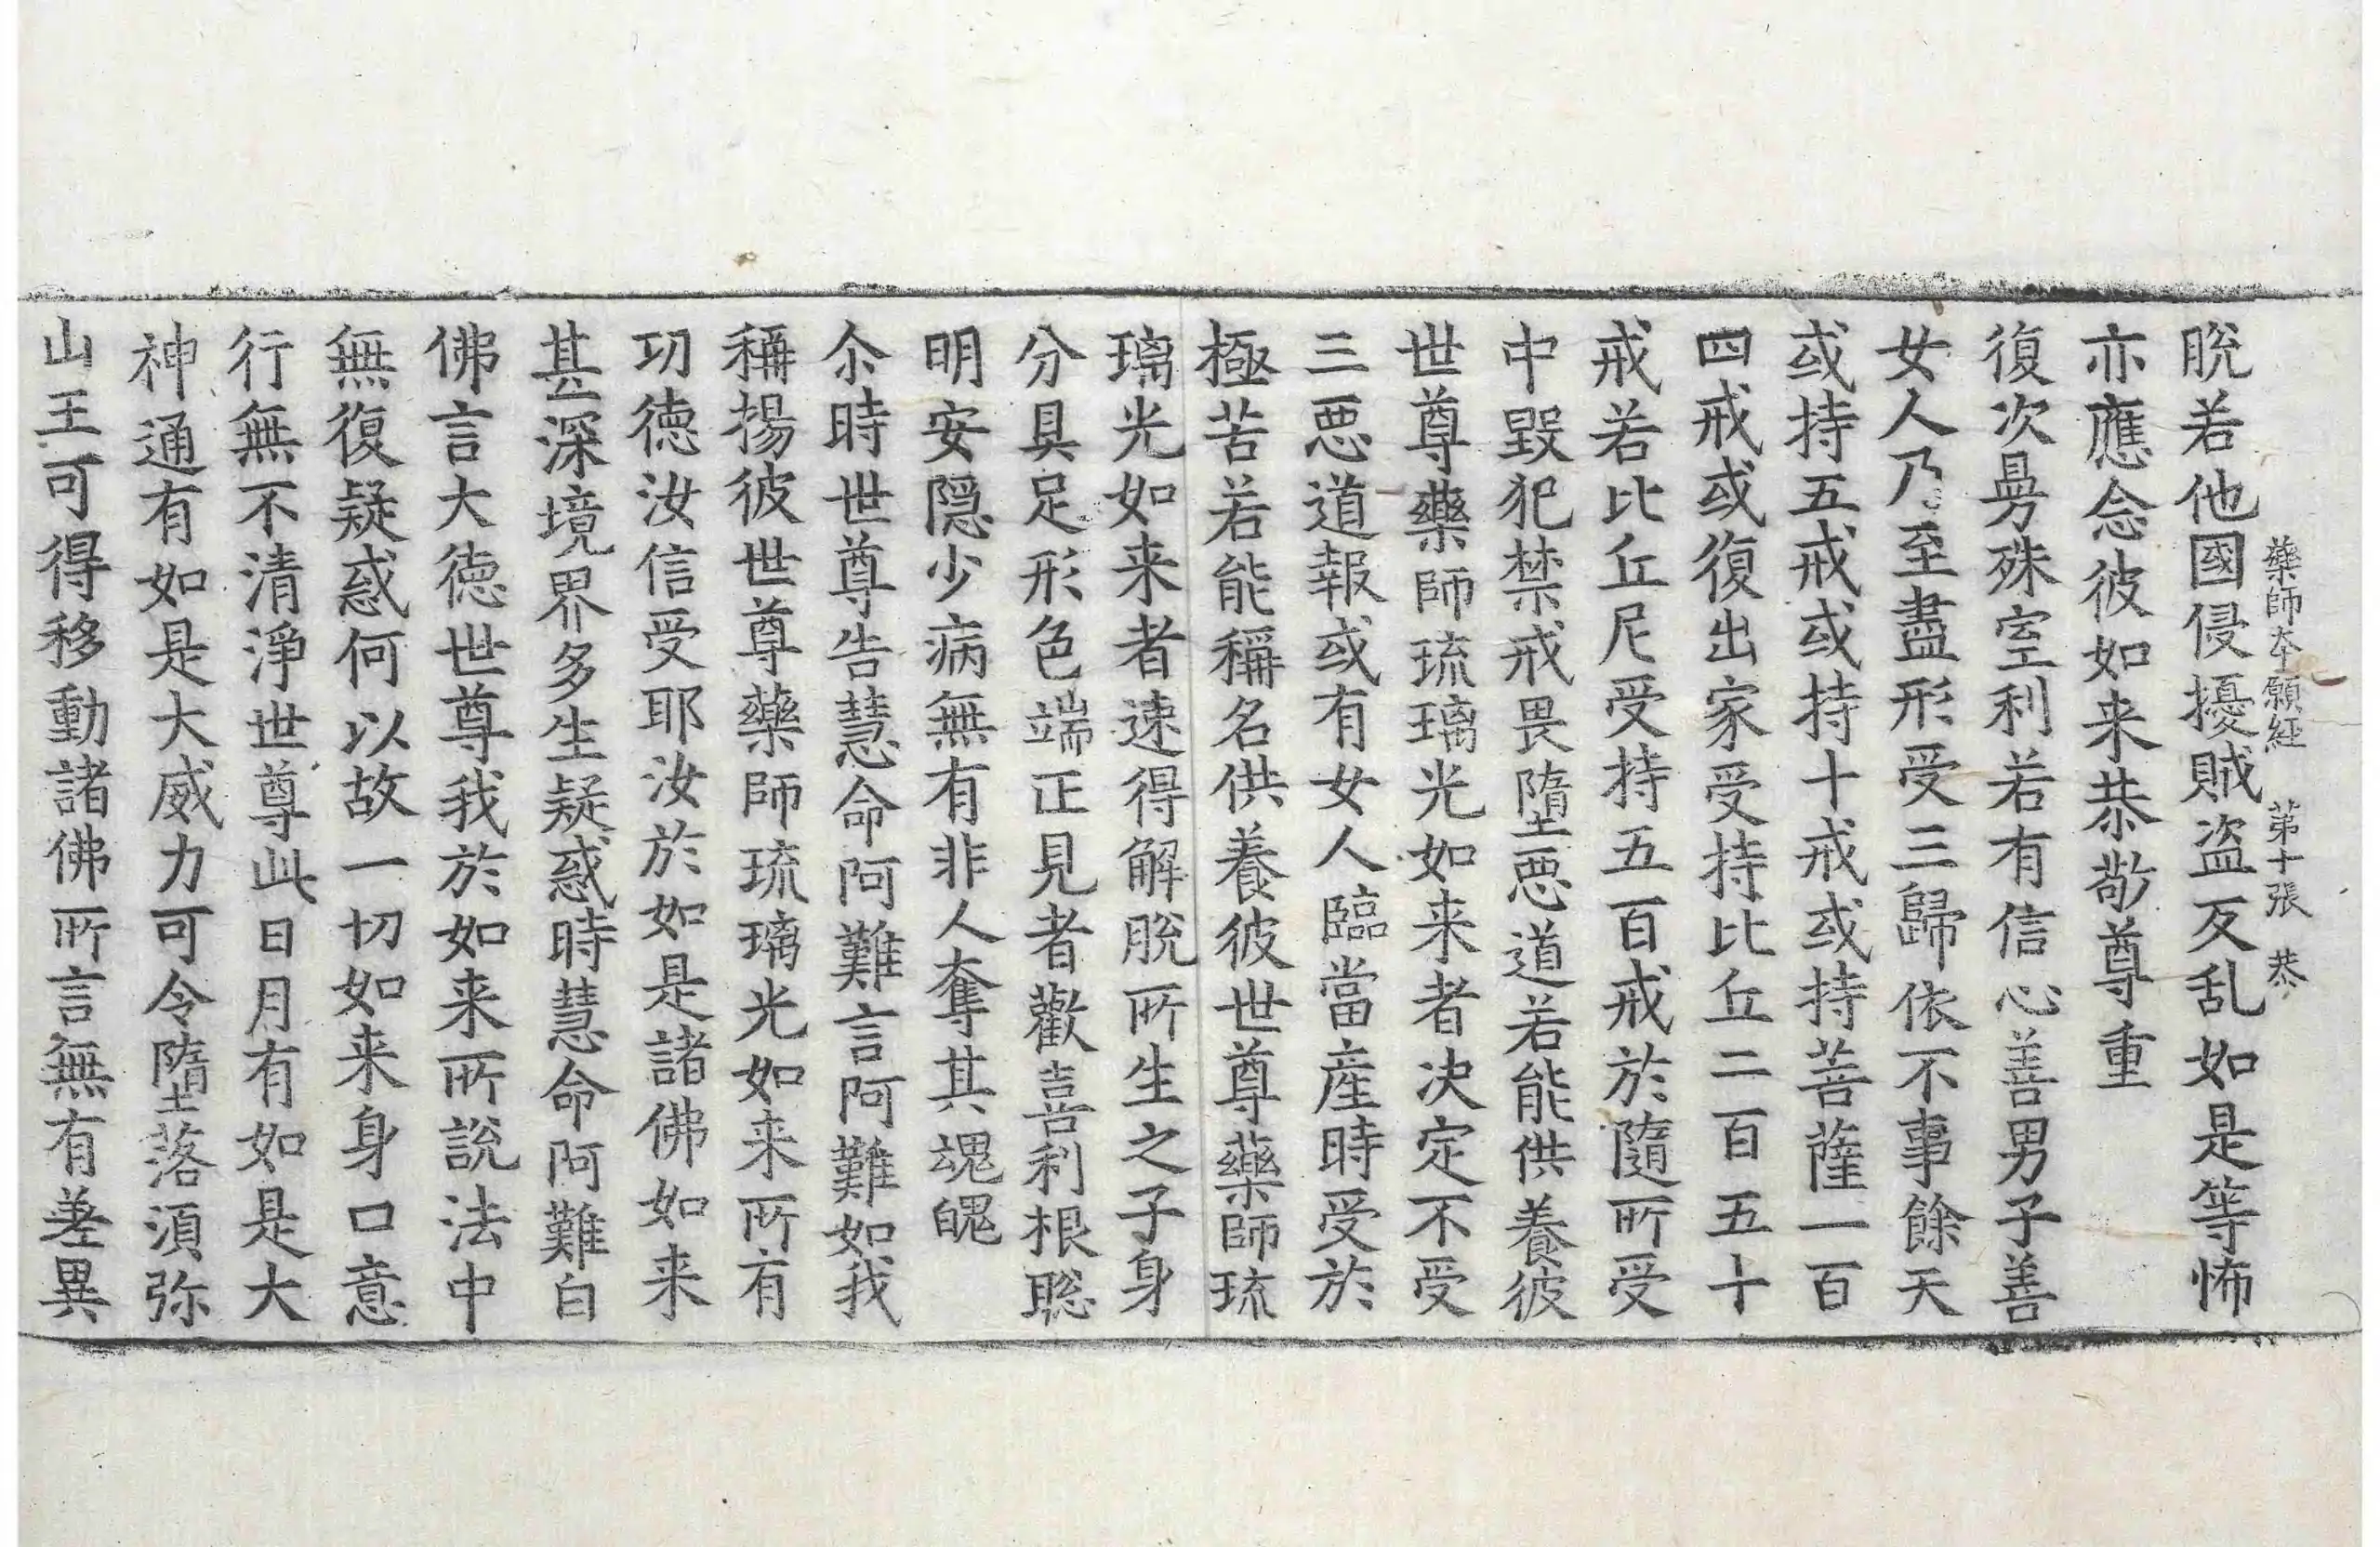 藥師本願経 第十張 恭
脫若他國侵擾賊盗反乱如是等怖
亦應念彼如来恭敬尊重
復次曼殊室利若有信心善男子善
女人乃至盡形受三歸依不事餘天
或持五戒或持十戒或持菩薩一百
四戒或復出家受持比丘二百五十
戒若比丘尼受持五百戒於隨所受
中毀犯禁戒畏墮惡道若能供養彼
世尊藥師琉璃光如来者决定不受
三惡道報或有女人臨當産時受於
極苦若能稱名供養彼世尊藥師琉
璃光如来者速得解脫所生之子身
分具足形色端正見者歡喜利根聡
明安隠少病無有非人奪其魂魄
尒時世尊告慧命阿難言阿難如我
稱揚彼世尊藥師琉璃光如来所有
功德汝信受耶汝於如是諸佛如来
甚深境界多生疑惑時慧命阿難白
佛言大德世尊我於如来所說法中
無復疑惑何以故一切如来身口意
行無不清淨世尊此日月有如是大
神通有如是大威力可令墮落湏弥
山王可得移動諸佛所言無有差異